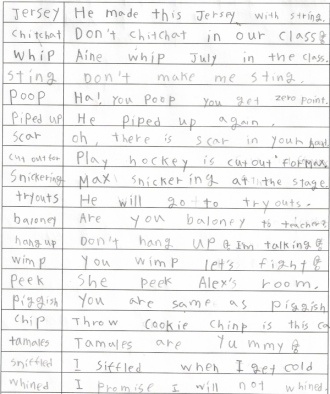 Jersey He made this Jersey with string.
chitchat Don't chitchat in our class!
whip Aine whip July in the class.
sting Don't make me sting.
Poop Ha! You Poop you get zero point.
Piped up He Piped up again.
scar oh, there is scar in your hand.
cut out for Play hockey is cut out for Max.
Snickering Max snickering at the stage.
tryouts He will go to tryouts.
baloney Are you baloney to teacher?
hang up Don't hang up! Im talking!
wimp You wimp let's fight!
Peek She peek Alex's room.
Piggish You are same as piggish
Chip Throw Cookie Chinp is this ca
tamales Tamales are Yummy!
sniffled I siffled when I get cold
whined I promise I will not whined.